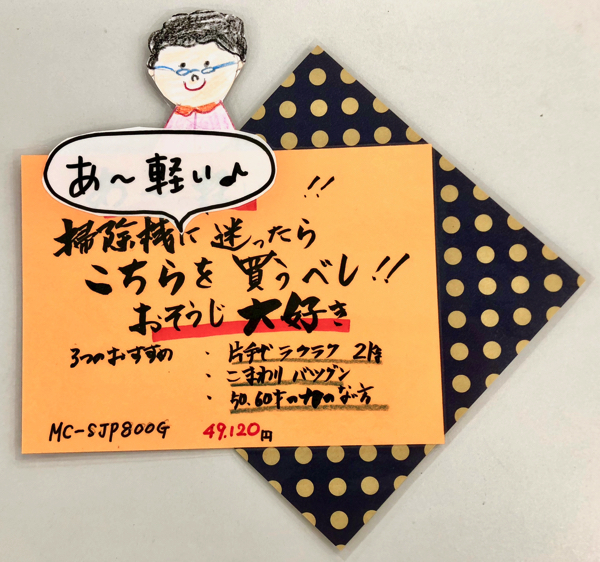 あ〜軽い♪
!!
掃除機に迷ったら
こちらを買うべし!!
おそうじ大好き
3つのおすすめ
・片手でラクラク 2kg
・こまわりバツグン
・50.60才の力のない方
MC-SJP800G 49.120円